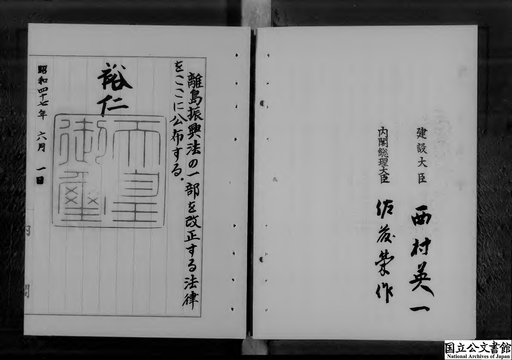 建設大臣 西村英一
内閣総理大臣 佐藤榮作
離島振興法の一部を改正する法律
をここに公布する。
裕仁
天皇
御璽
昭和四十七年 六月 一日
国立公文書館
National Archives of Japan